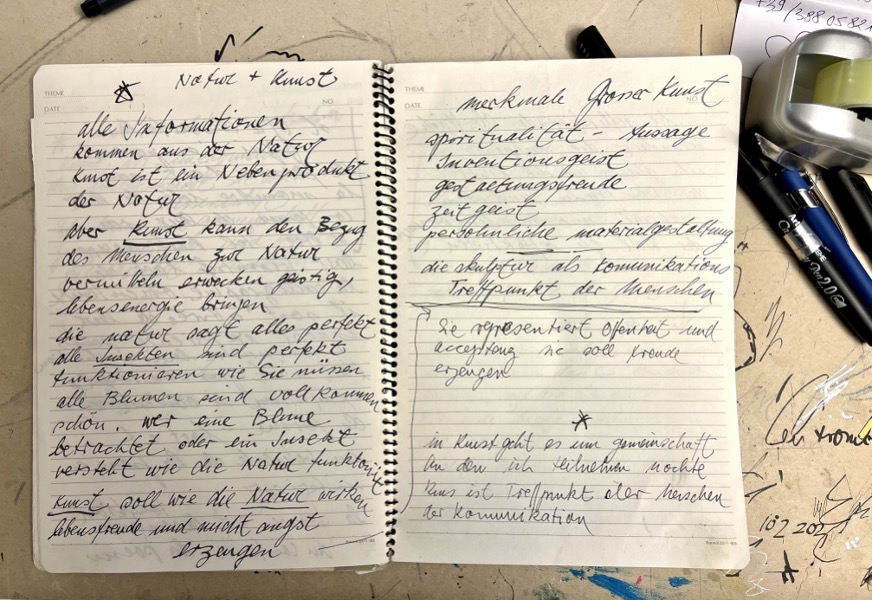 Natur + Kunst
THEME
DATE
NO.
alle Informationen
kommen aus der Natur
Kunst ist ein Nebenprodukt
der Natur
aber Kunst kann den Bezug
des Menschen zur Natur
vermitteln erwecken geistig,
lebensenergie bringen
die natur sagt alles perfekt
alle Insekten sind perfekt
funktionieren wie Sie müssen
alle Blumen sind vollkommen
schön. wer eine Blume
betrachtet oder ein Insekt
versteht wie die Natur funktioniert
Kunst soll wie die Natur wirken
lebensfreude und nicht angst
erzeugen
THEME
DATE
NO.
merkmale Grosser Kunst
spiritualität - Aussage
Inventionsgeist
gestaltungsfreude
zeitgeist
persöhnliche materialgestaltung
die skulptur als Komunikations
Treffpunkt der Menschen
Sie representiert offenheit und
sie soll freude
erzeugen
in Kunst geht es um gemeinschaft
An den ich teilnehmen möchte
Kuns ist Treffpunkt der Menschen
der Komunikation